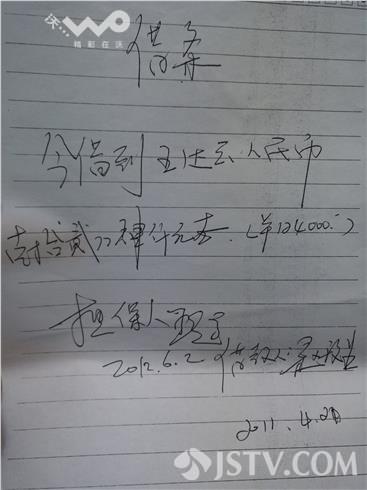 沃...
精彩在沃
借条
今借到王达云人民币
壹拾贰万肆仟元整.(¥124000.)
担保人
2012.6.2 借款人:
2011.4.21
JSTV.COM